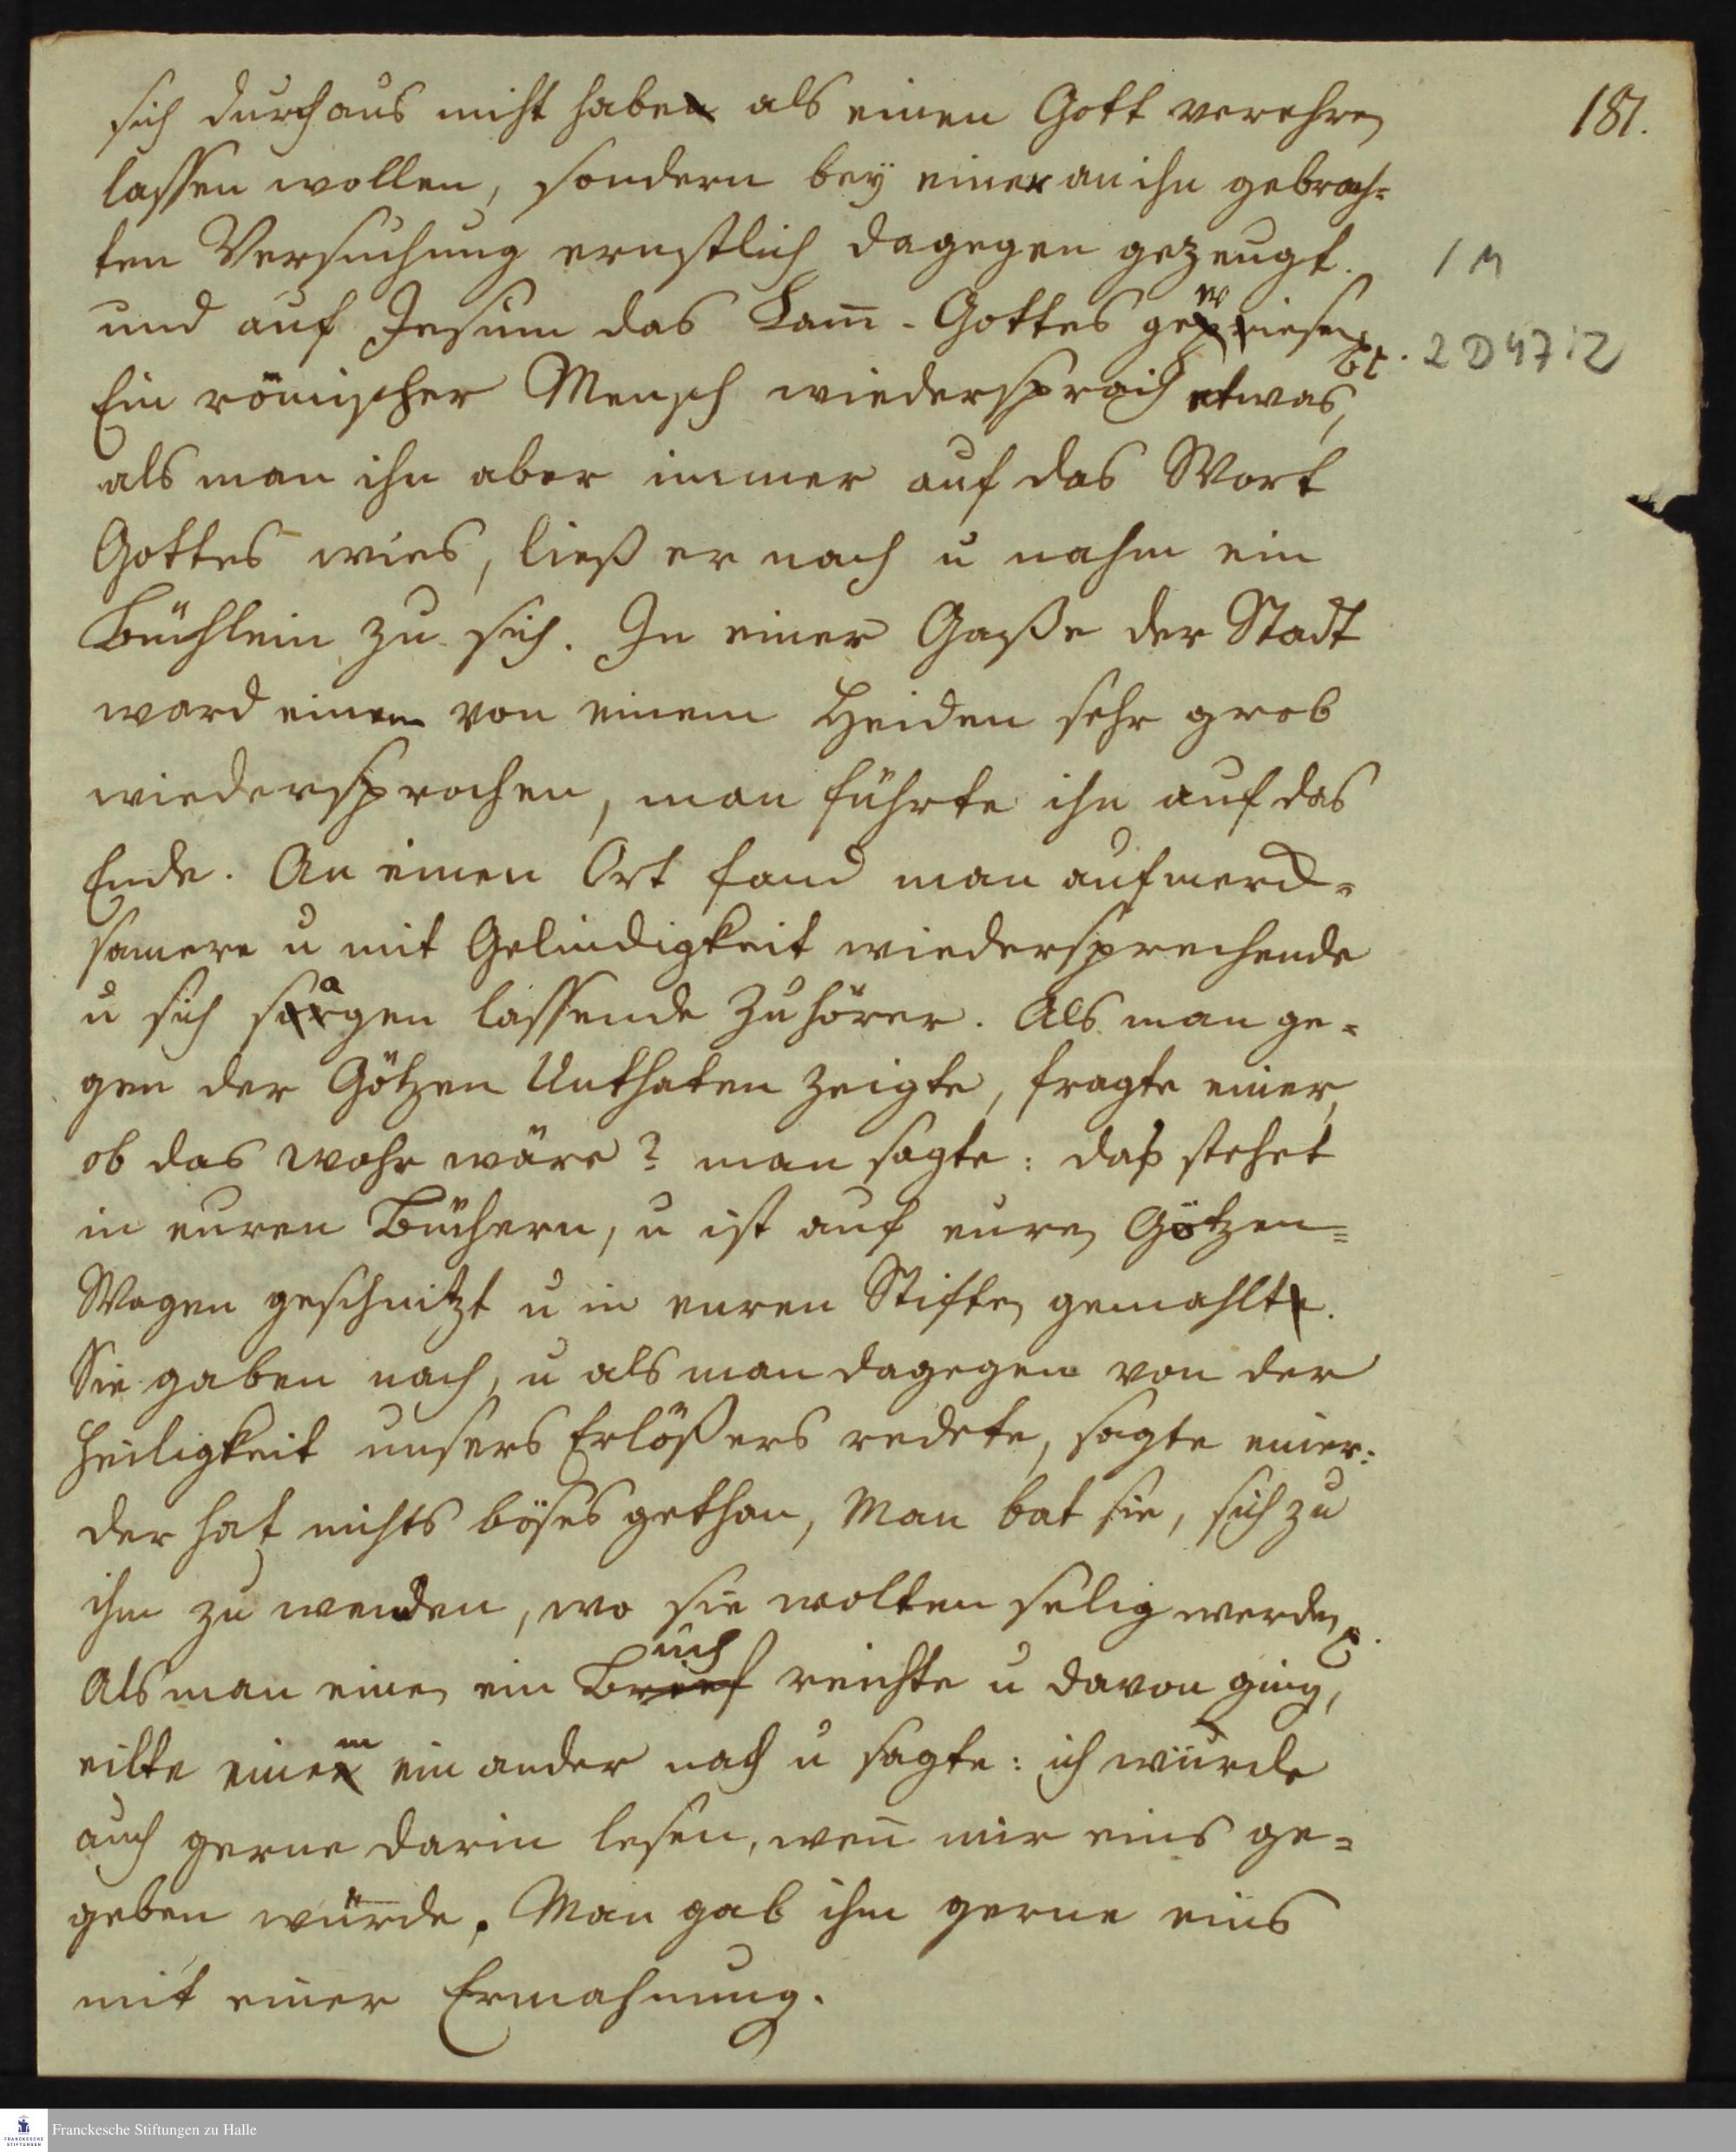 181.
sich durchaus nicht habe als einen Gott verehren
lassen wollen, sondern bey einer an ihn gebrach=
ten Versuchung ernstlich dagegen gezeugt.
und auf Jesum das Lam̅ - Gottes gewiesen
1 M
2 D 47:2
Ein römischer Mensch wiedersprach etwas,
als man ihn aber immer auf das Wort
Gottes wies, ließ er nach u nahm ein
Büchlein zu sich. In einer Gaße der Stadt
ward einem von einem Heiden sehr grob
wiedersprochen, man führte ihn auf das
Ende. An einen Ort fand man aufmerck=
samere u mit Gelindigkeit wiedersprechende
u sich sagen lassende Zuhörer. Als man ge=
gen der Götzen Unthaten zeigte, fragte einer,
ob das wahr wäre? man sagte: daß stehet
in euren Büchern, u ist auf euren Götzen=
Wagen geschnitzt u in euren Stiften gemahlt.
Sie gaben nach, u als man dagegen von der
Heiligkeit unsers Erlößers redete, sagte einer:
der hat nichts böses gethan, Man bat sie, sich zu
ihm zu wenden, wo sie wolten selig werden.
Als man einen ein Buch reichte u davon ging,
eilte einem ein ander nach u sagte: ich würde
auch gerne darin lesen, wen̅ mir eins ge=
geben würde. Man gab ihm gerne eins
mit einer Ermahnung.
Franckesche Stiftungen zu Halle